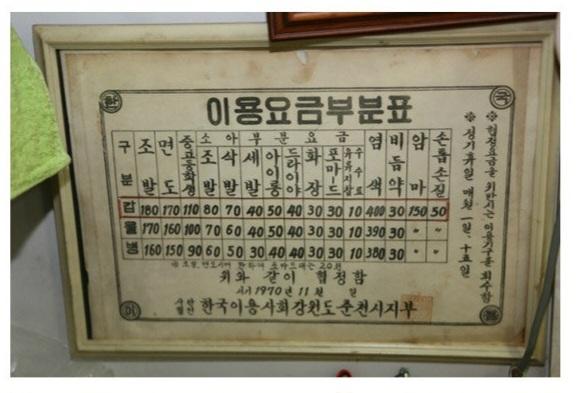 이용요금부분표
구분 조발 면도 중고등학생 소아 부분요금 조발 삭발 세발 아이롱 드라이야 화장 포마드 수수료 염색 비듬약 암마 손톱손질
갑 180 170 110 80 70 40 50 40 30 30 10 400 30 150 50
을 170 160 100 70 60 40 40 40 30 30 10 390 30 〃 〃
병 160 150 90 60 50 30 40 40 30 30 10 380 30 〃 〃
위와 같이 협정함
서기 1970년 11월 일
사단법인 한국이용사회강원도춘천시지부
※ 협정요금을 위반시는 이용기구를 회수함
※ 정기휴일 매월 一일. 十五일
한
국
이